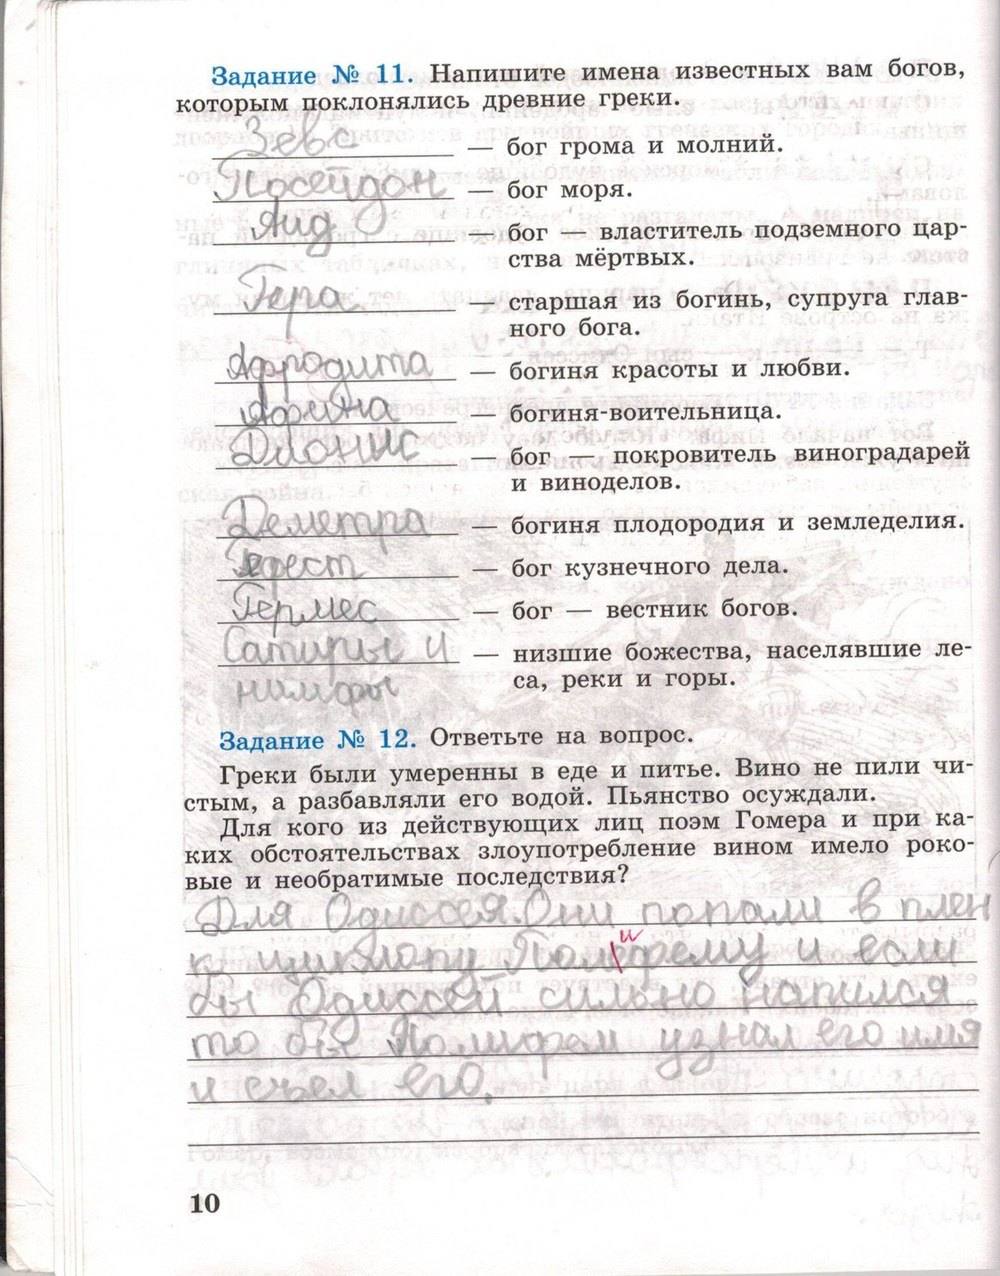 Задание № 11. Напишите имена известных вам богов,
которым поклонялись древние греки.
Зевс — бог грома и молний.
Посейдон — бог моря.
Аид — бог — властитель подземного цар-
ства мёртвых.
Гера — старшая из богинь, супруга глав-
ного бога.
Афродита — богиня красоты и любви.
Афина — богиня-воительница.
Дионис — бог — покровитель виноградарей
и виноделов.
Деметра — богиня плодородия и земледелия.
Гефест — бог кузнечного дела.
Гермес — бог — вестник богов.
Сатиры и — низшие божества, населявшие ле-
нимфы са, реки и горы.
Задание № 12. Ответьте на вопрос.
Греки были умеренны в еде и питье. Вино не пили чи-
стым, а разбавляли его водой. Пьянство осуждали.
Для кого из действующих лиц поэм Гомера и при ка-
ких обстоятельствах злоупотребление вином имело роко-
вые и необратимые последствия?
Для Одиссея. Они попали в плен
к циклопу Полифему и если
бы Одиссей сильно напился
то бы Полифем узнал его имя
и съел его.
10